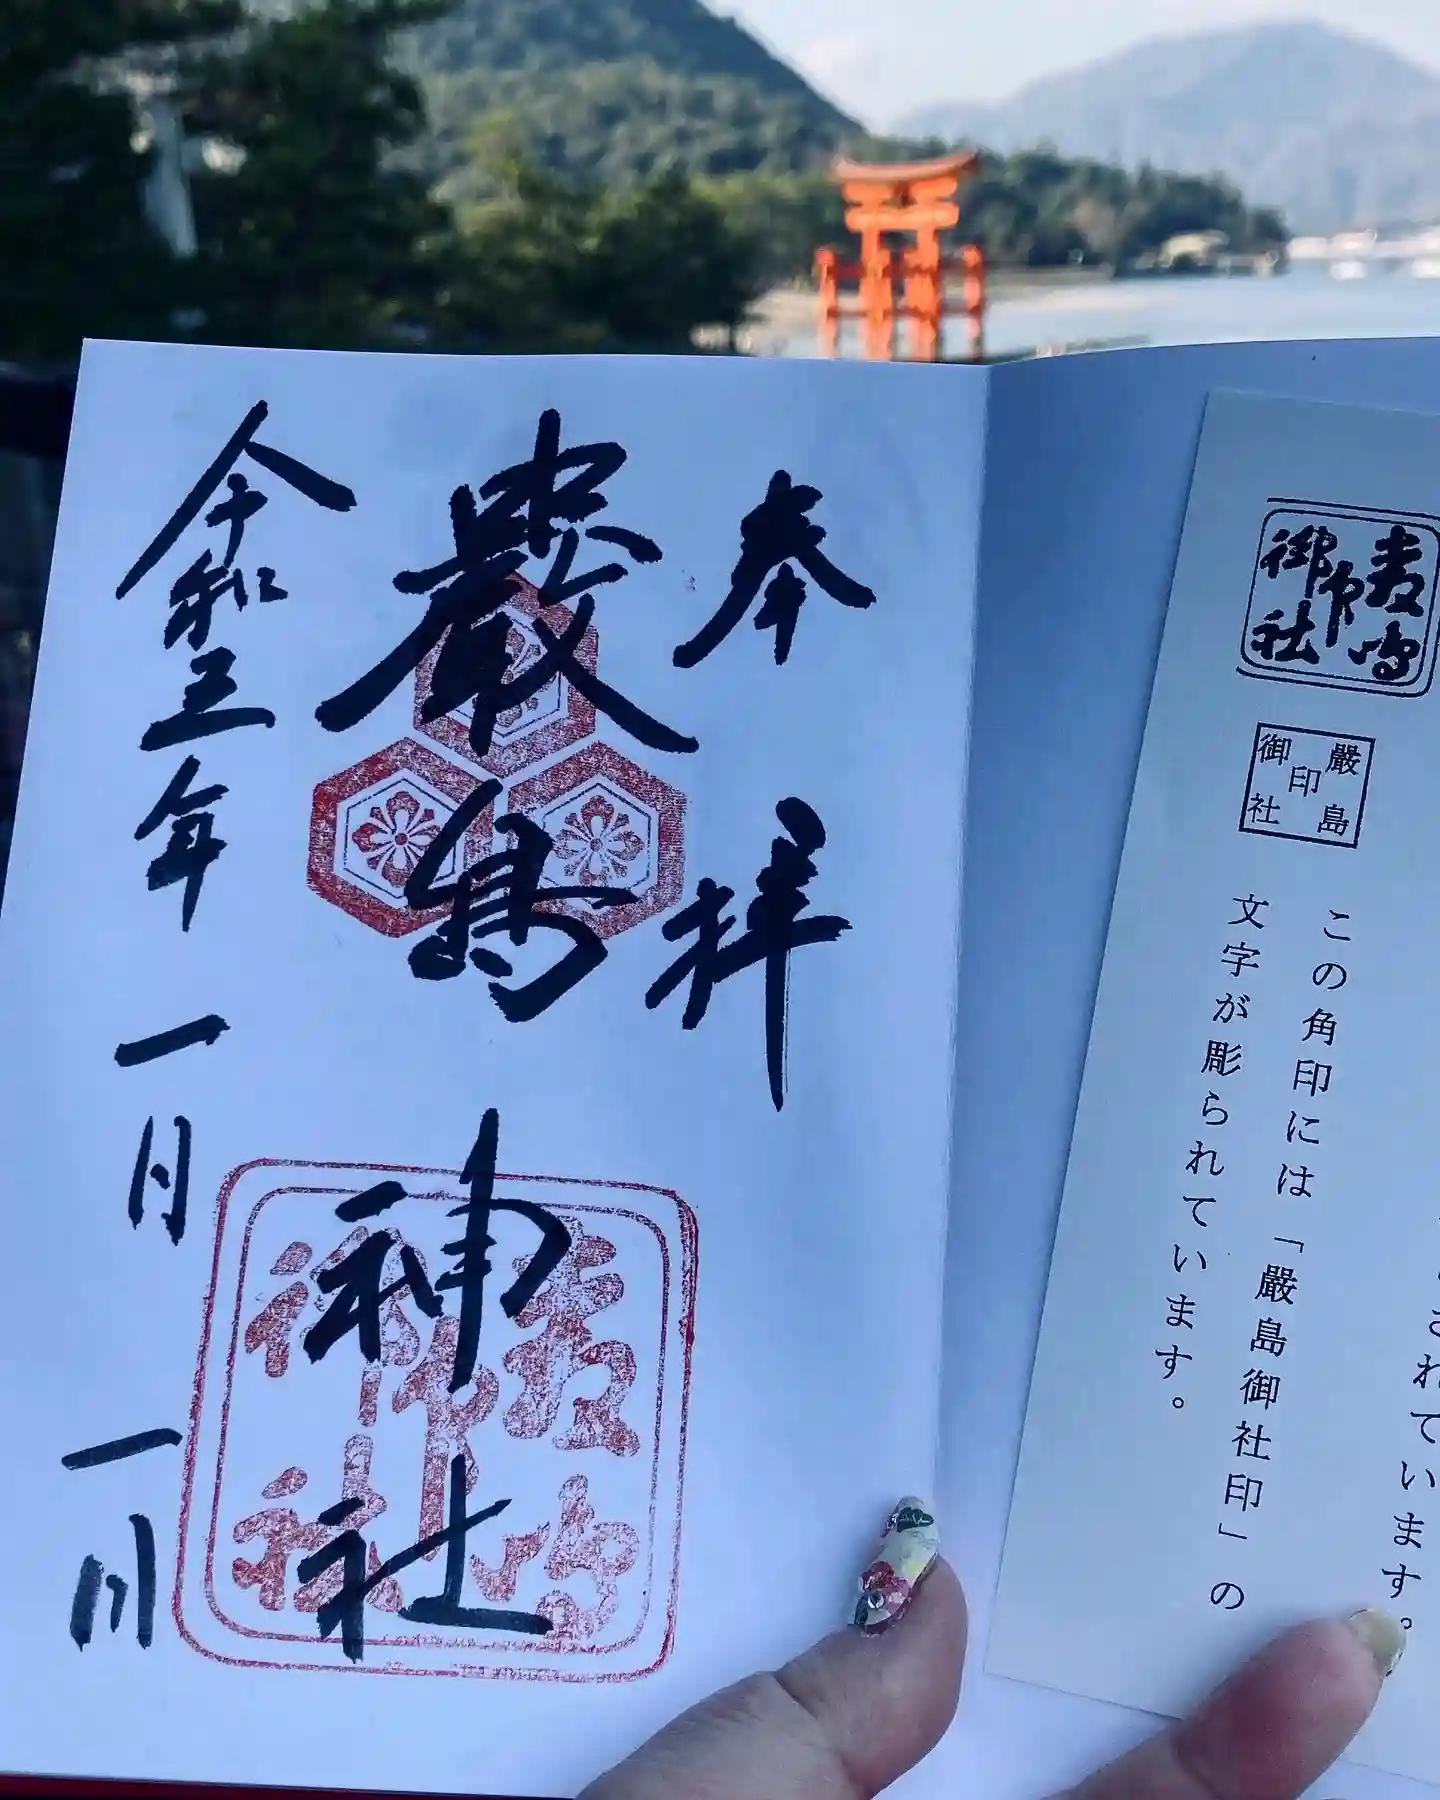 されています。
嚴島
印
御社
嚴島
印
御社
この角印には「嚴島御社印」の
文字が彫られています。
奉拝
嚴島神社
嚴島
印
御社
令和三年一月一日